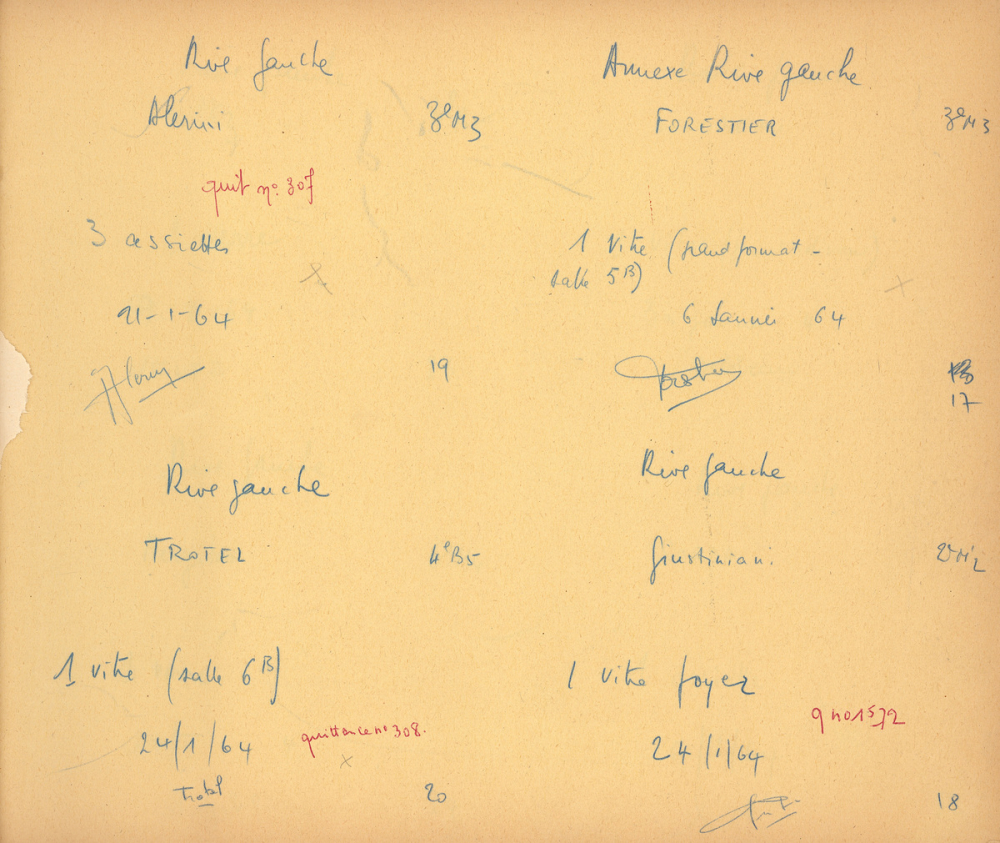 Rive gauche
Alerini 3e M3
quit no 307
3 assiettes
21-1-64
19
Annexe Rive gauche
FORESTIER 3e M3
1 Vitre (grand format -
salle 5B)
6 Janvier 64
17
Rive gauche
TROTEL 4e B5
1 vitre (salle 6B)
24/1/64
quittance no 308.
Trotel 20
Rive gauche
Giustiniani 2e M2
1 vitre foyer
q no 1572
24/1/64
18